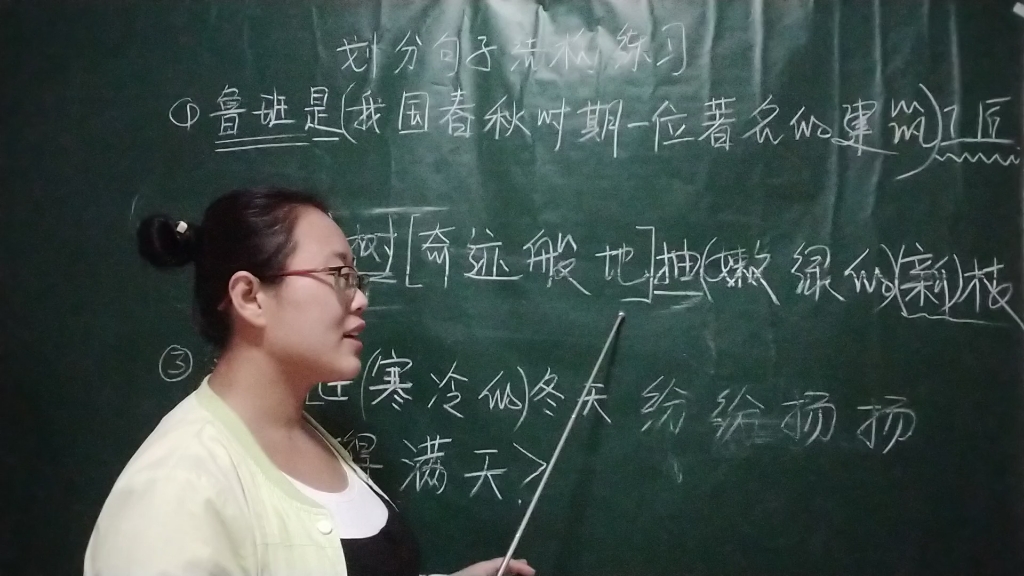 划分句子结构练习
① 鲁班是(我国春秋时期一位著名的建筑)工匠
树[奇迹般地]抽(嫩绿的)(新)枝
③ 在(寒冷的)冬天 纷纷扬扬
得满天>